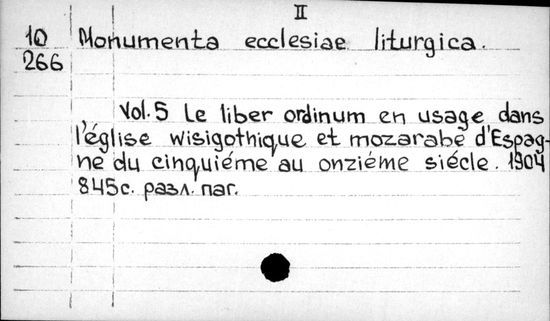 II
10 Monumenta ecclesiae liturgica.
266
Vol. 5 Le liber ordinum en usage dans
l'église wisigothique et mozarabe d'Espag-
ne du cinquiéme au onziéme siécle. 1904
845с. разл. паг.